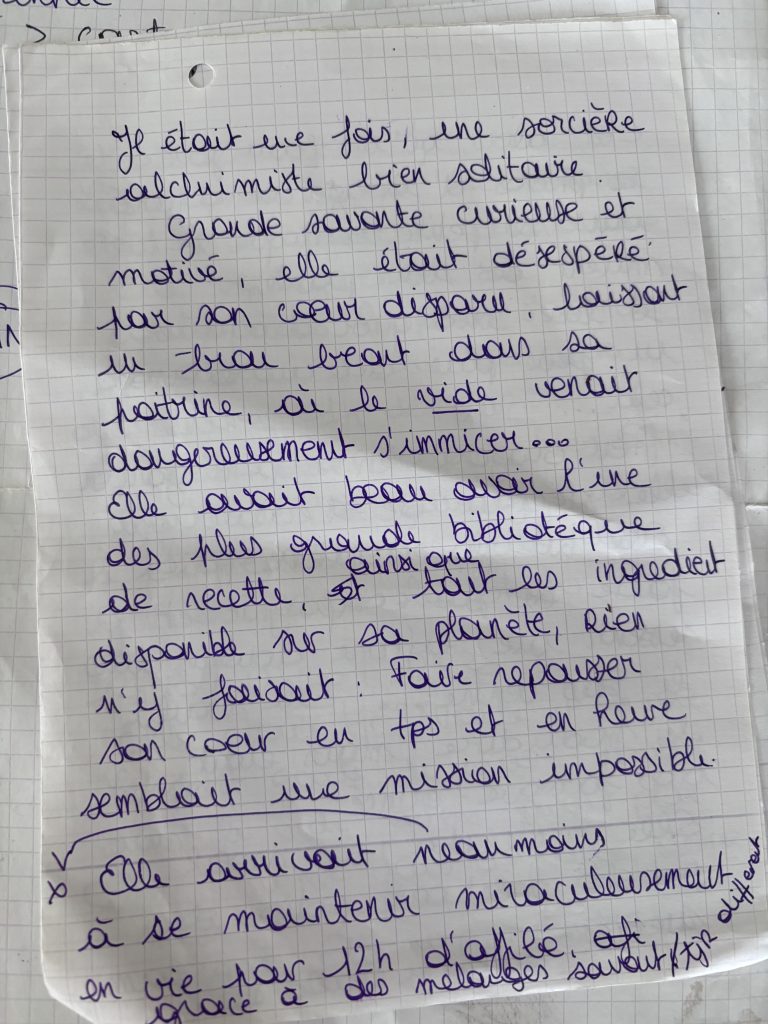 Il était une fois, une sorcière
alchimiste bien solitaire.
Grande savante curieuse et
motivé, elle était désespéré
par son cœur disparu, laissant
un trou béant dans sa
poitrine, où le vide venait
dangereusement s'immicer...
Elle avait beau avoir l'une
des plus grande bibliotéque
de recette, ainsi que tout les ingredient
disponible sur sa planète, rien
n'y faisait : Faire repousser
son coeur en tps et en heure
semblait une mission impossible.
Elle arrivait neaumoins
à se maintenir miraculeusement
en vie par 12h d'affilé,
grace à des mélanges savant different